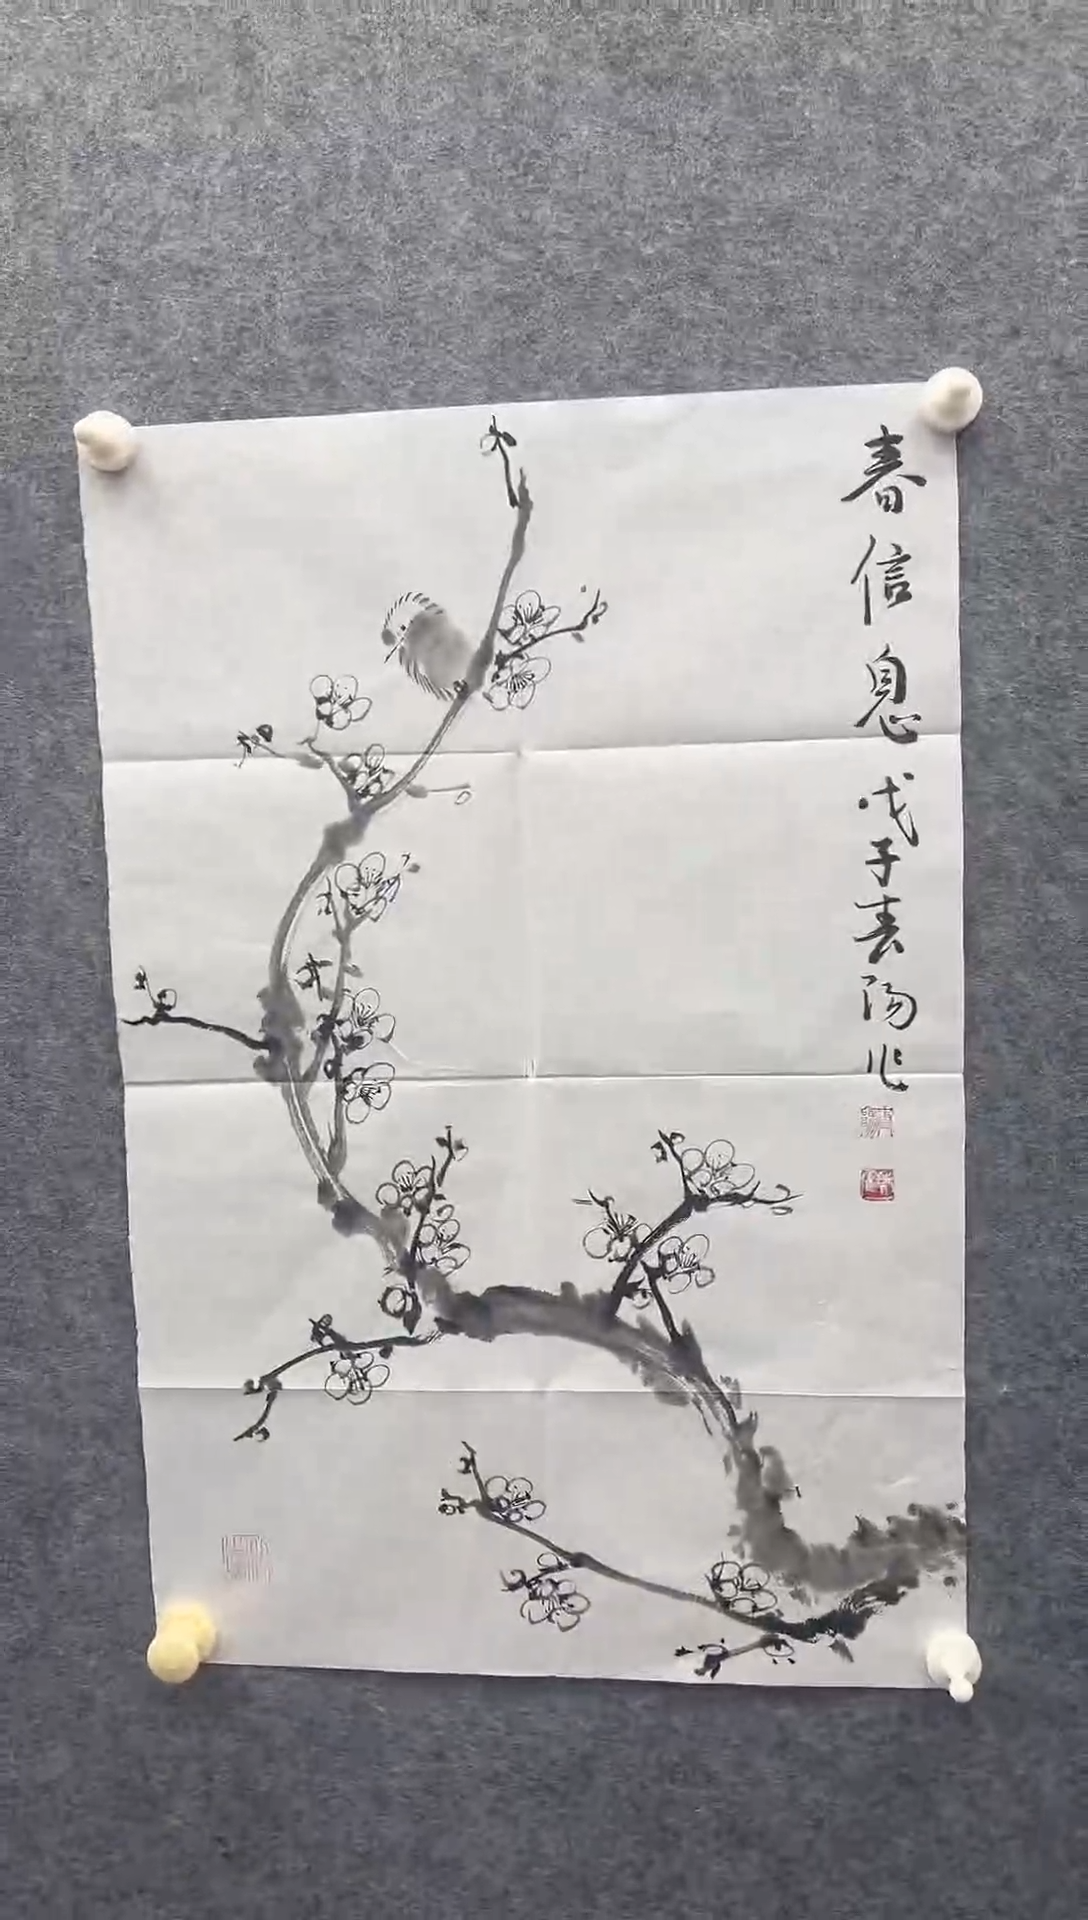 春信息 戊子春阳作